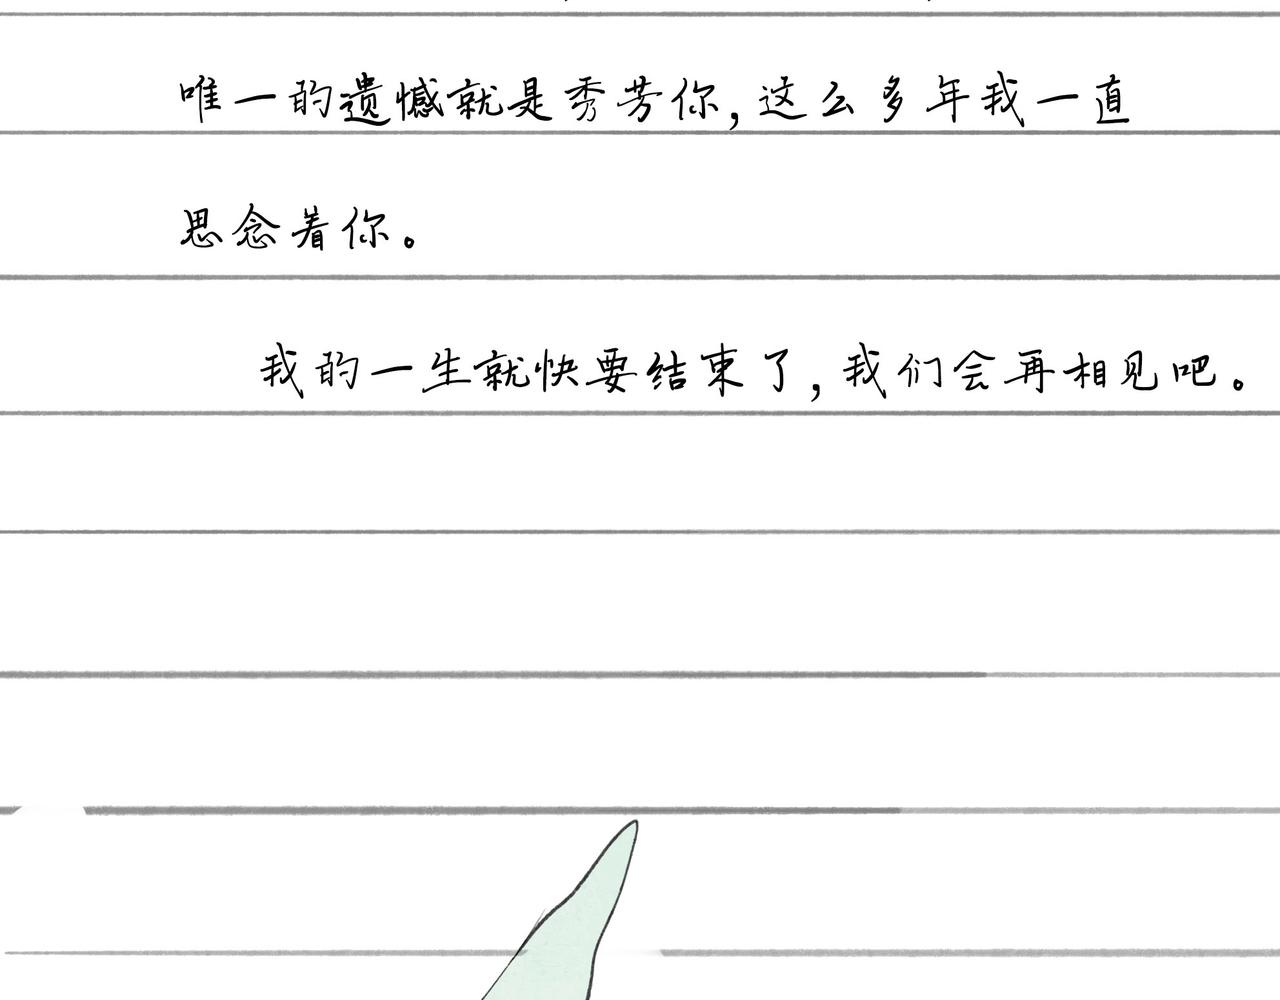 唯一的遗憾就是秀芳你,这么多年我一直
思念着你。
我的一生就快要结束了,我们会再相见吧。